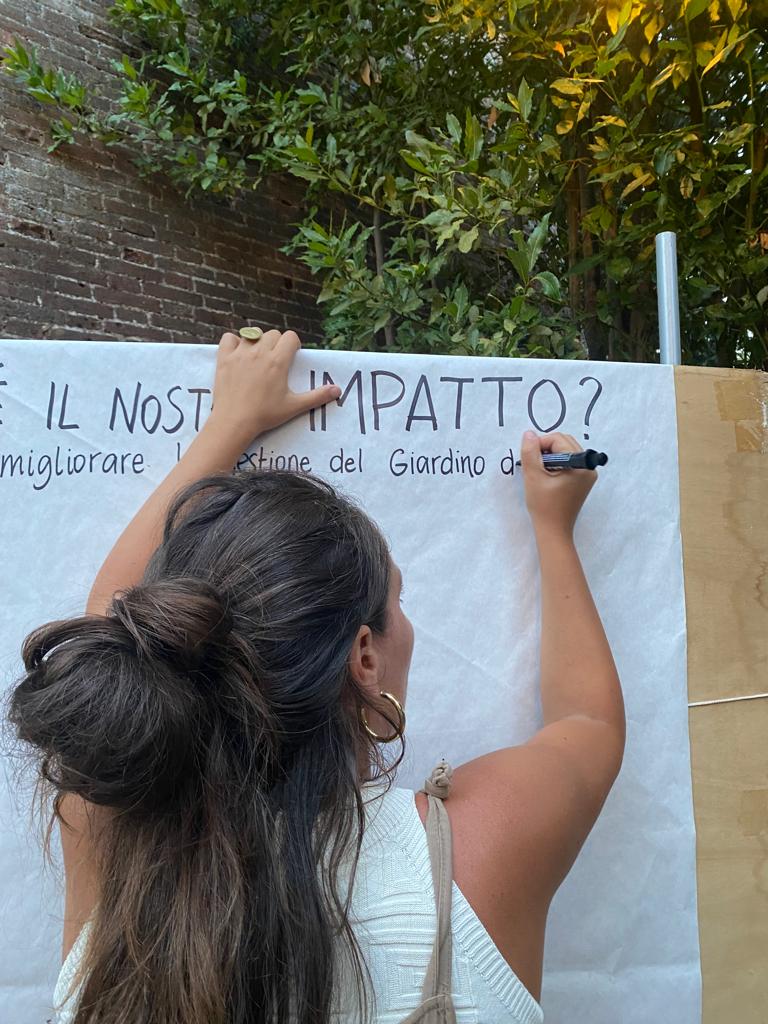 È IL NOST IMPATTO?
migliorare l estione del Giardino d